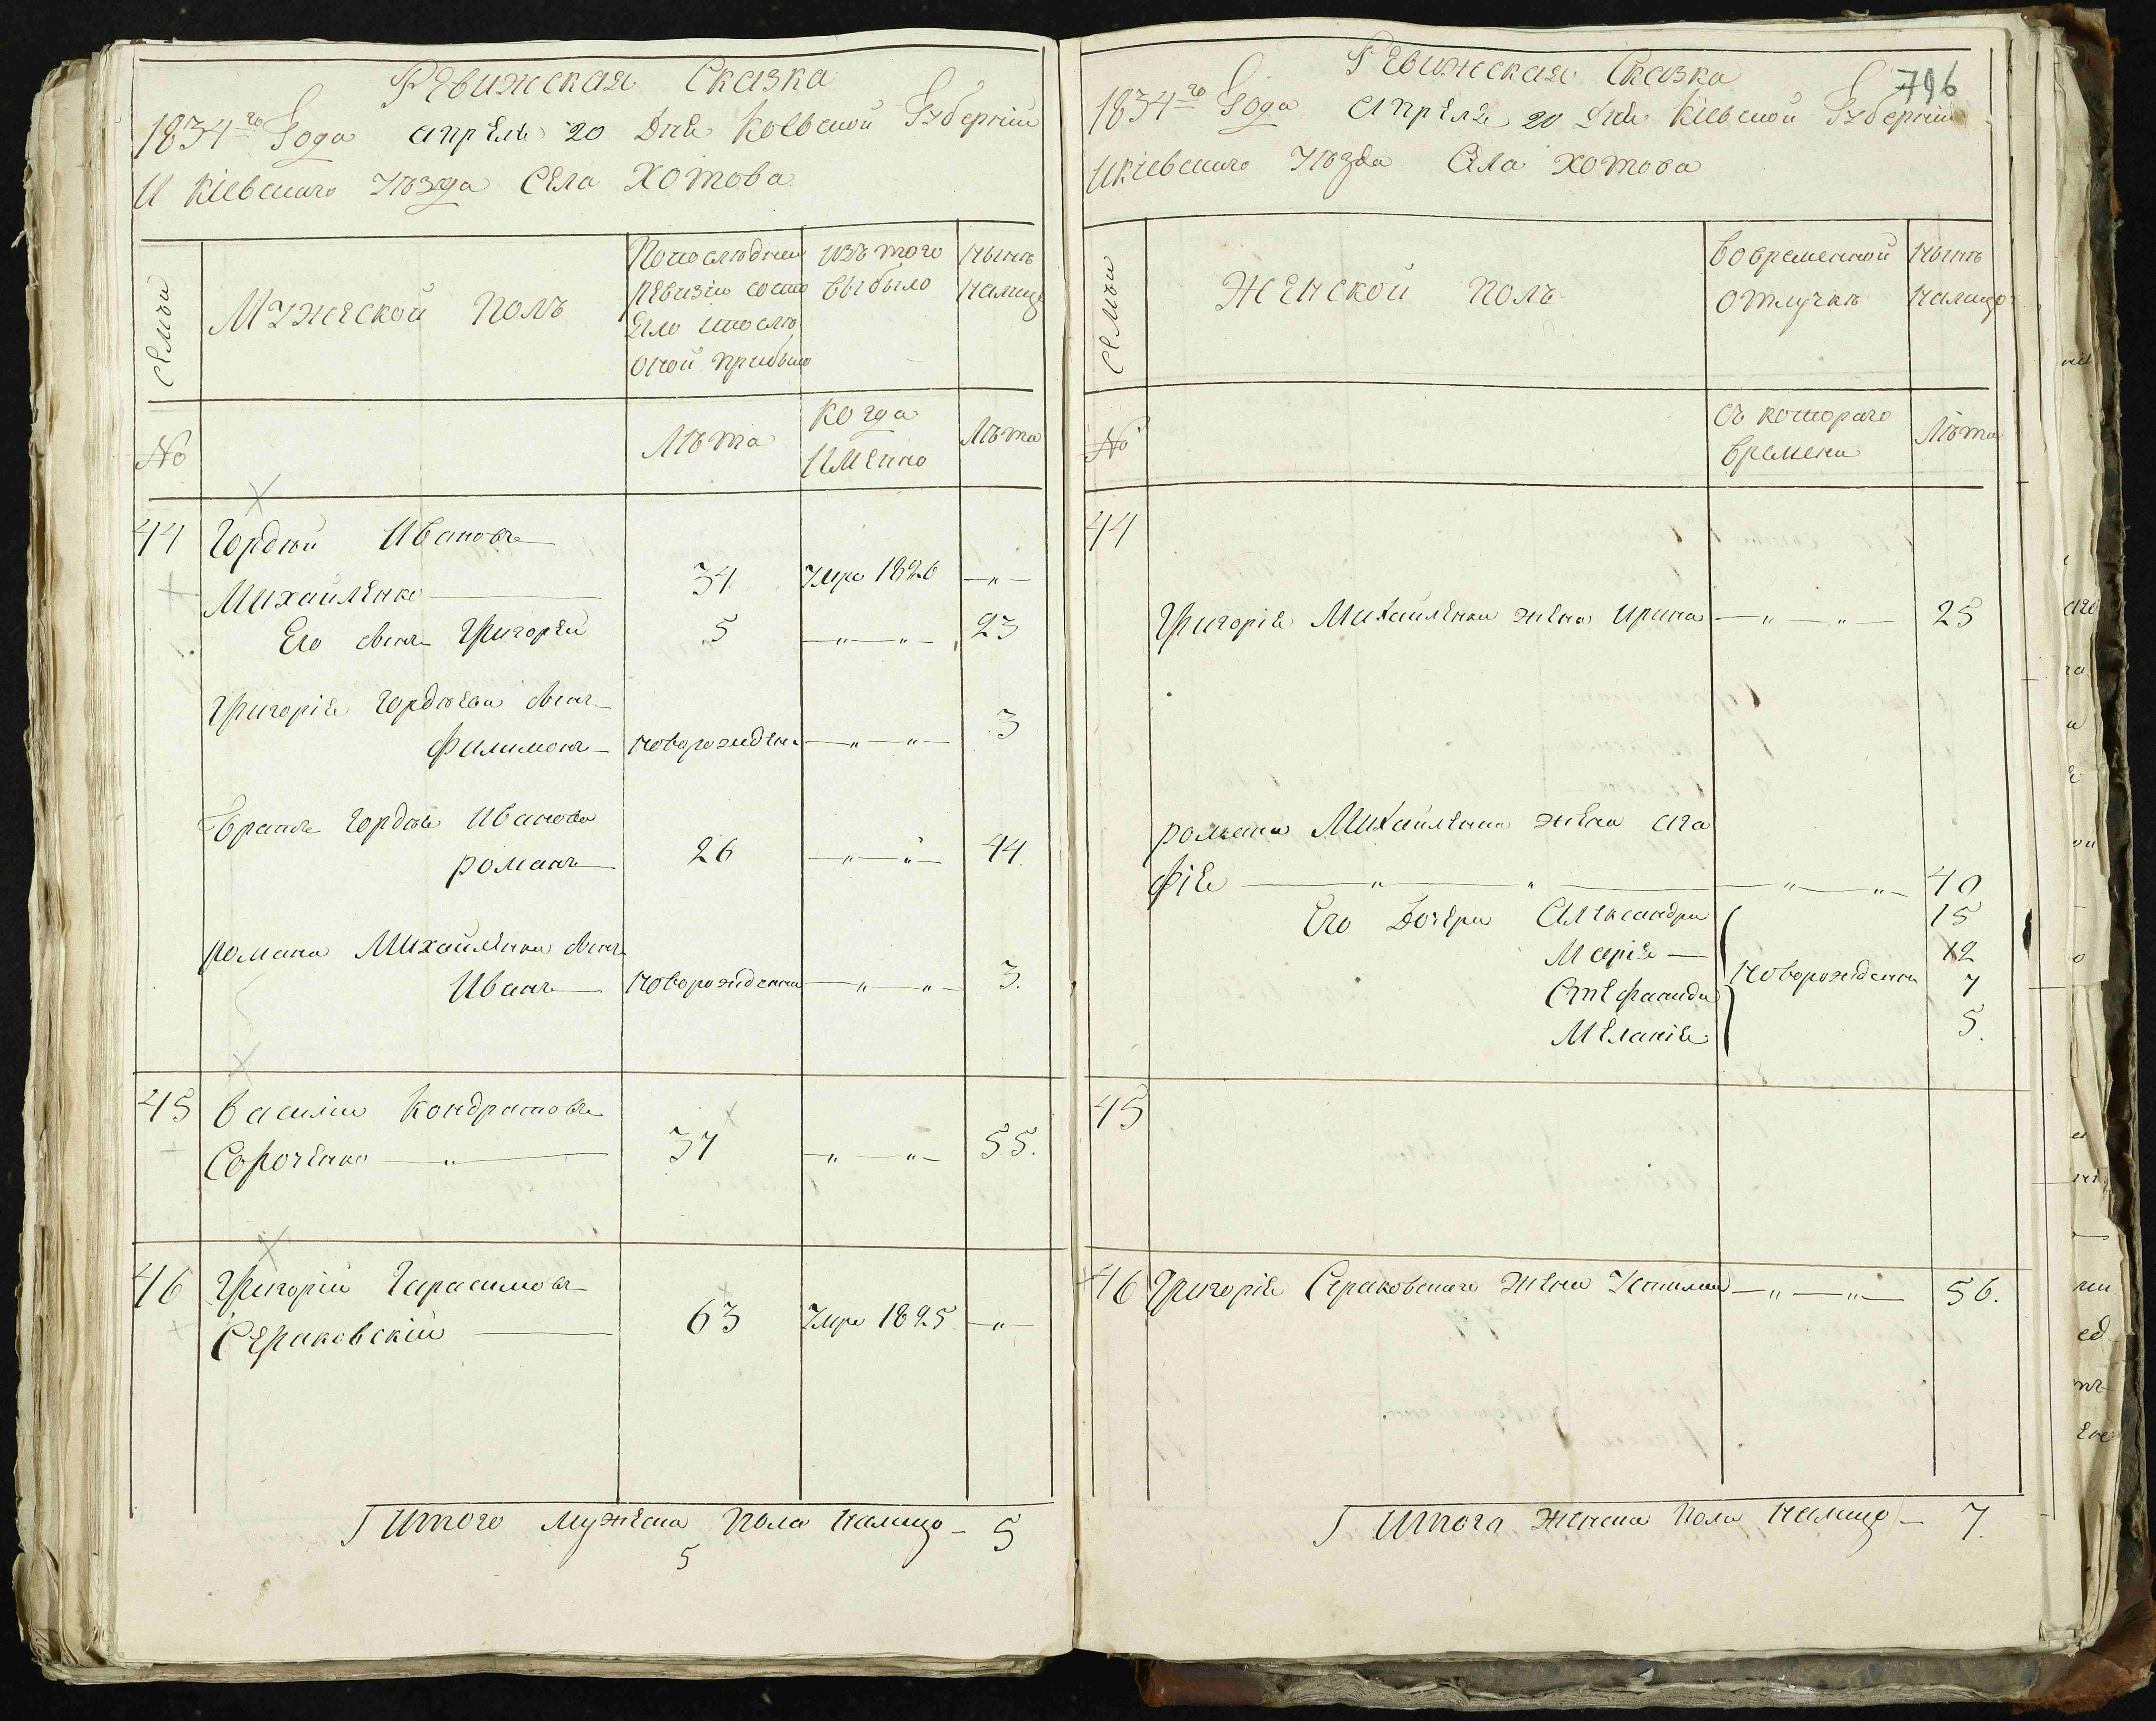 Ревижская Сказка
1834го Года апреля 20 Дня Киевской Губернии
И Кіевскаго Уезда Села Хотова
Семьи
Мужеской полъ
Попоследней
ревизіи состо
яло ипосле
оной прибыло
изъ того
выбыло
ныне
налицо
№
Лѣта
Когда
имянно
Лѣта
44 Гордѣй Ивановъ
Михайленко 34 Умре 1826 — „ —
Его сынъ Григорей 5 — „ — „ — 23
Григорія Гордѣева сынъ
Филимонъ — новорожденъ — „ — „ — 3
братъ Гордѣя Иванова
романъ 26 — „ — „ — 44.
романа Михайленка сынъ
Иванъ новорожденны — „ — „ — 3.
45 Василий Кондратовъ
Сороченко — „ — 37 — „ — „ — 55.
46 Григорій Гарасимовъ
Сераковскій — 63 Умре 1825 — „ —
Итого мужеска пола налицо — 5
5
796
Ревижская Сказка
1834го Года Апреля 20 Дня Кіевской Губерніи
Икіевскаго Уезда Села Хотова
Семьи
Женской полъ
Вовременной
отлучкѣ
ныне
налицо
№
съ котораго
времени
Лѣта
44
Григорія Михайленка жена Ирина — „ — „ — 25
романа Михайленка жена ага
фія — „ — „ — „ — „ — 40
Его Дочери Александра 15
Марія — 12
новорожденны
Стефанида 7
Меланія 5.
45
46 Григорія Сераковскаго жена — „ — „ — 56.
Итого женска пола налицо — 7.